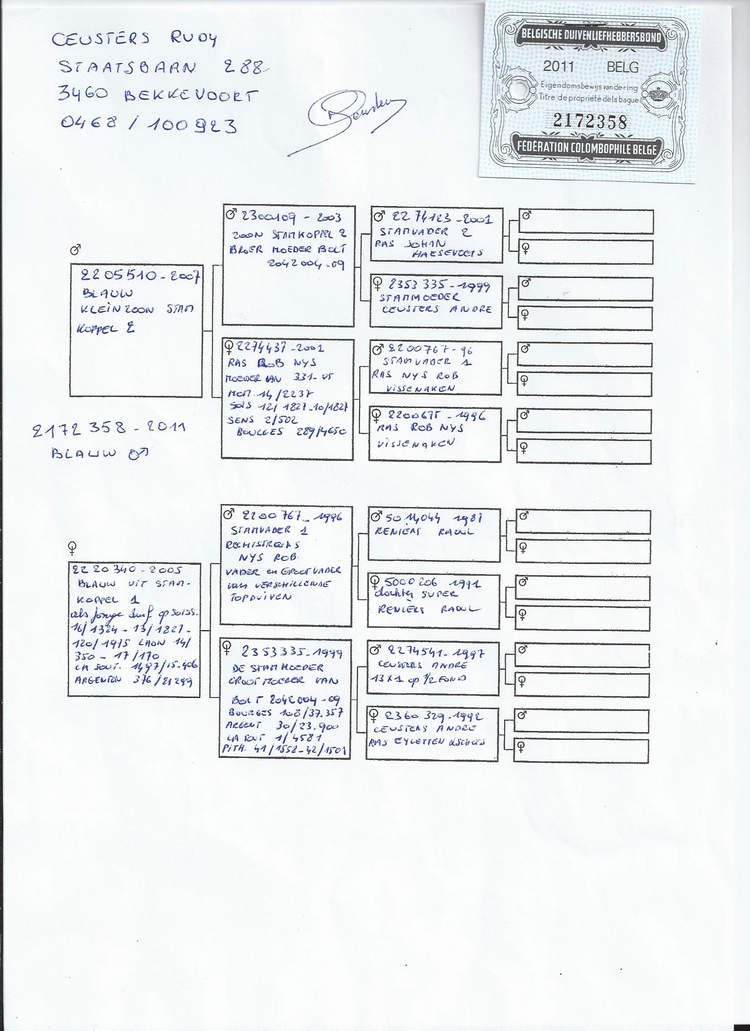 CEUSTERS RUDY
STAATSBAAN 288
3460 BEKKEVOORT
0468/100923
BELGISCHE DUIVENLIEFHEBBERSBOND
2011 BELG
Eigendomsbewijs van der ring
Titre de propriété de la bague
2172358
FÉDÉRATION COLOMBOPHILE BELGE
2172358-2011
BLAUW ♂
♂
2205510-2007
BLAUW
KLEINZOON STAM
KOPPEL 2
♂ 2300109-2003
ZOON STAMKOPPEL 2
BROER MOEDER BOLT
2042004-09
♀ 2274437-2001
RAS ROB NYS
MOEDER VAN 331-05
MOM. 14/2237
SOIS 12/1827-10/1827
SENS 2/502
BOURGES 289/4650
♂ 2274123-2001
STAMVADER 2
RAS JOHAN
HAESEVOETS
♀ 2353335-1999
STAMMOEDER
CEUSTERS ANDRE
♂ 2200767-96
STAMVADER 1
RAS NYS ROB
VISSENAKEN
♀ 2200675-1996
RAS ROB NYS
VISSENAKEN
♀
2220340-2005
BLAUW UIT STAM-
KOPPEL 1
als jonge duif op soiss.
16/1324-13/1827-
120/1915 LAON 14/
350-17/170
LA SOUT. 1497/15.406
ARGENTON 376/21299
♂ 2200767-1996
STAMVADER 1
RECHTSTREEKS
NYS ROB
VADER en GROOTVADER
van VERSCHILLENDE
TOPDUIVEN
♀ 2353335-1999
DE STAMMOEDER
GROOTMOEDER VAN
BOLT 2042004-09
BOURGES 108/37.357
ARGENT 30/23.900
LA SOUT 1/4581
PITH. 41/1558-42/1501
♂ 5014044 1987
RENIERS RAOUL
♀ 5000206 1991
dochter SUPER
RENIERS RAOUL
♂ 2274541-1997
CEUSTERS ANDRE
13X1 op 1/2 FOND
♀ 2360329-1992
CEUSTERS ANDRE
RAS